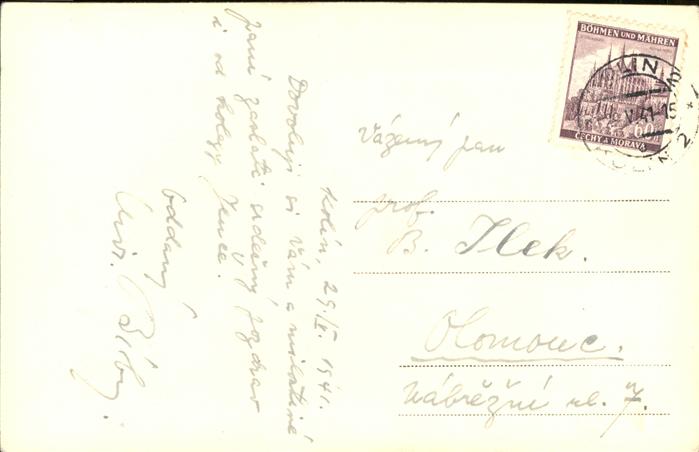 Kolín, 29./V. 1941.
Dovoluji si Vám a milostivé
paní zaslati srdečný pozdrav
i od kolegy Jence.
Oddaný
Vážený pan
prof.
B. Ilek.
Olomouc.
Nábřežní ul. 7.
BÖHMEN UND MÄHREN
ČECHY A MORAVA